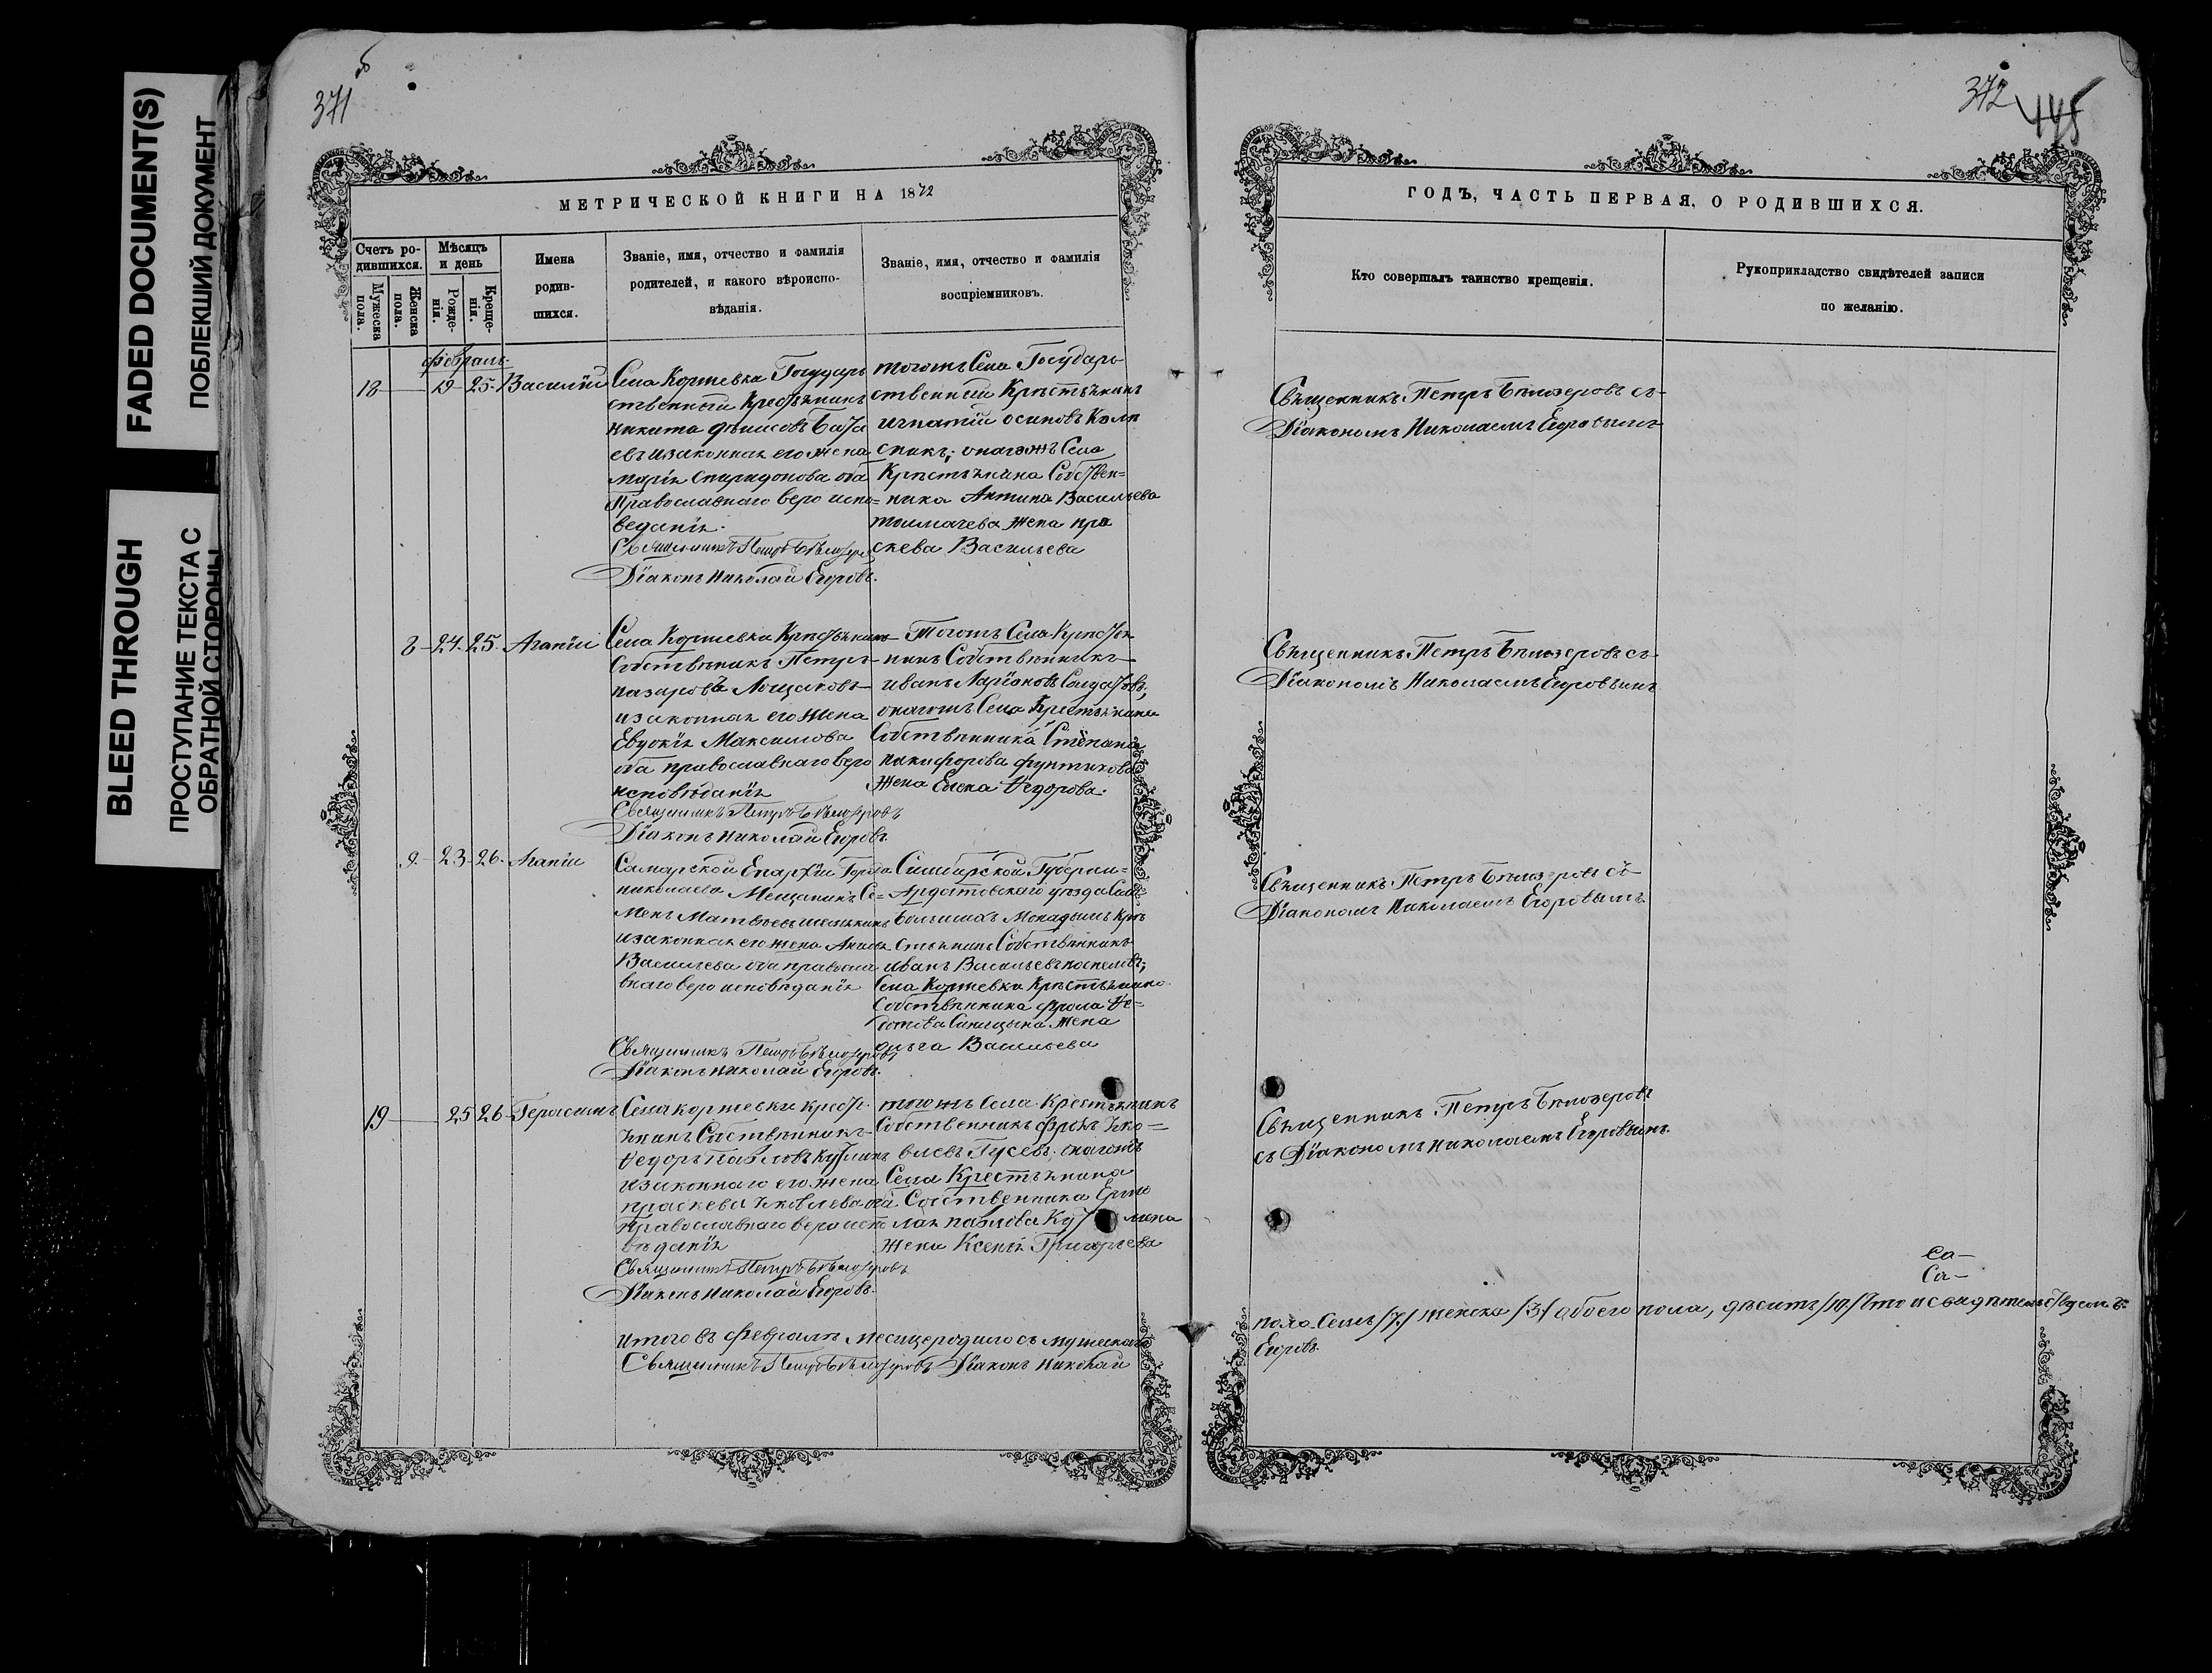 FADED DOCUMENT(S)
ПОБЛЕКШИЙ ДОКУМЕНТ
BLEED THROUGH
ПРОСТУПАНИЕ ТЕКСТА С
ОБРАТНОЙ СТОРОНЫ
371
МЕТРИЧЕСКОЙ КНИГИ НА 1872
Счетъ ро-
дившихся.
Мужеска
пола.
Женска
пола.
Мѣсяцъ
и день
Рожде-
нія.
Креще-
нія.
Имена
родив-
шихся.
Званіе, имя, отчество и фамилія
родителей, и какого вѣроиспо-
вѣданія.
Званіе, имя, отчество и фамилія
воспріемниковъ.
февраль
18 19 25 Василій
Села Коржевка Государ
ственный Крестьянинъ
Никита
и законная его жена
Марія Спиридонова оба
Православнаго веро испо-
веданія.
Священникъ Петръ Бѣлозеровъ
Діаконъ Николай Егоровъ.
тогожъ Села Государ
ственный Крестьянинъ
Игнатій Осиповъ
онагожъ Села
Крестьянина Собствен-
ника Антипа Васильева
толмачева жена пра
скева Васильева
8 24 25 Агапіи
Села Коржевка Крестьянинъ
Собственникъ Петръ
Назаровъ
и законная его жена
Евдокія Максимова
оба православнаго веро
исповѣданія
Священникъ Петръ Бѣлозеровъ
Діаконъ Николай Егоровъ
Тогожъ Села Кресть
нинъ Собственникъ
Иванъ Ларіоновъ Солдатовъ;
онагожъ Села Крестьянина
Собственника Степана
Никифорова фунтикова
жена Елена Ѳедорова.
9 23 26 Агапіи
Самарской Епархіи Города
Николаева Мещанинъ Се-
менъ
и законная его жена
Васильева оба правосла
внаго веро исповѣданія
Священникъ Петръ Бѣлозеровъ
Діаконъ Николай Егоровъ.
Симбирской Губерніи-
Ардатовскаго уѣзда Села
Большихъ Манадышъ Кре
стьянинъ Собственникъ
Иванъ Васильевъ
Села Коржевки Крестьянина
Собственника фрола Ѳе-
дотова Синицына жена
Ольга Васильева
19 25 26 Герасимъ
Села коржевки крест
янинъ Собственникъ
Ѳедоръ Павловъ
и законнаго его жена
праскева Яковлева оба
Православнаго вероиспо
вѣданія
Священникъ Петръ Бѣлозеровъ
Діаконъ Николай Егоровъ.
тогожъ Села Крестьянинъ
Собственникъ фролъ Яко-
влевъ Гусевъ; онагожъ
Села Крестьянина
Собственника Ермо
лая павлова
жена Ксенія Григорьева
Итого въ февралѣ месяце родилось мужеска
Священникъ Петръ Бѣлозеровъ Діаконъ Николай
372
445
ГОДЪ, ЧАСТЬ ПЕРВАЯ, О РОДИВШИХСЯ.
Кто совершалъ таинство крещенія.
Рукоприкладство свидѣтелей записи
по желанію.
Священникъ Петръ Бѣлозеровъ съ
Діакономъ Николаемъ Егоровымъ
Священникъ Петръ Бѣлозеровъ съ
Діакономъ Николаемъ Егоровымъ
Священникъ Петръ Бѣлозеровъ съ
Діакономъ Николаемъ Егоровымъ
Священникъ Петръ Бѣлозеровъ
съ Діакономъ Николаемъ Егоровымъ.
пола Семь /7/ женска /3/ обоего пола, десить /10/ что и свидѣтельствуемъ:
Егоровъ.